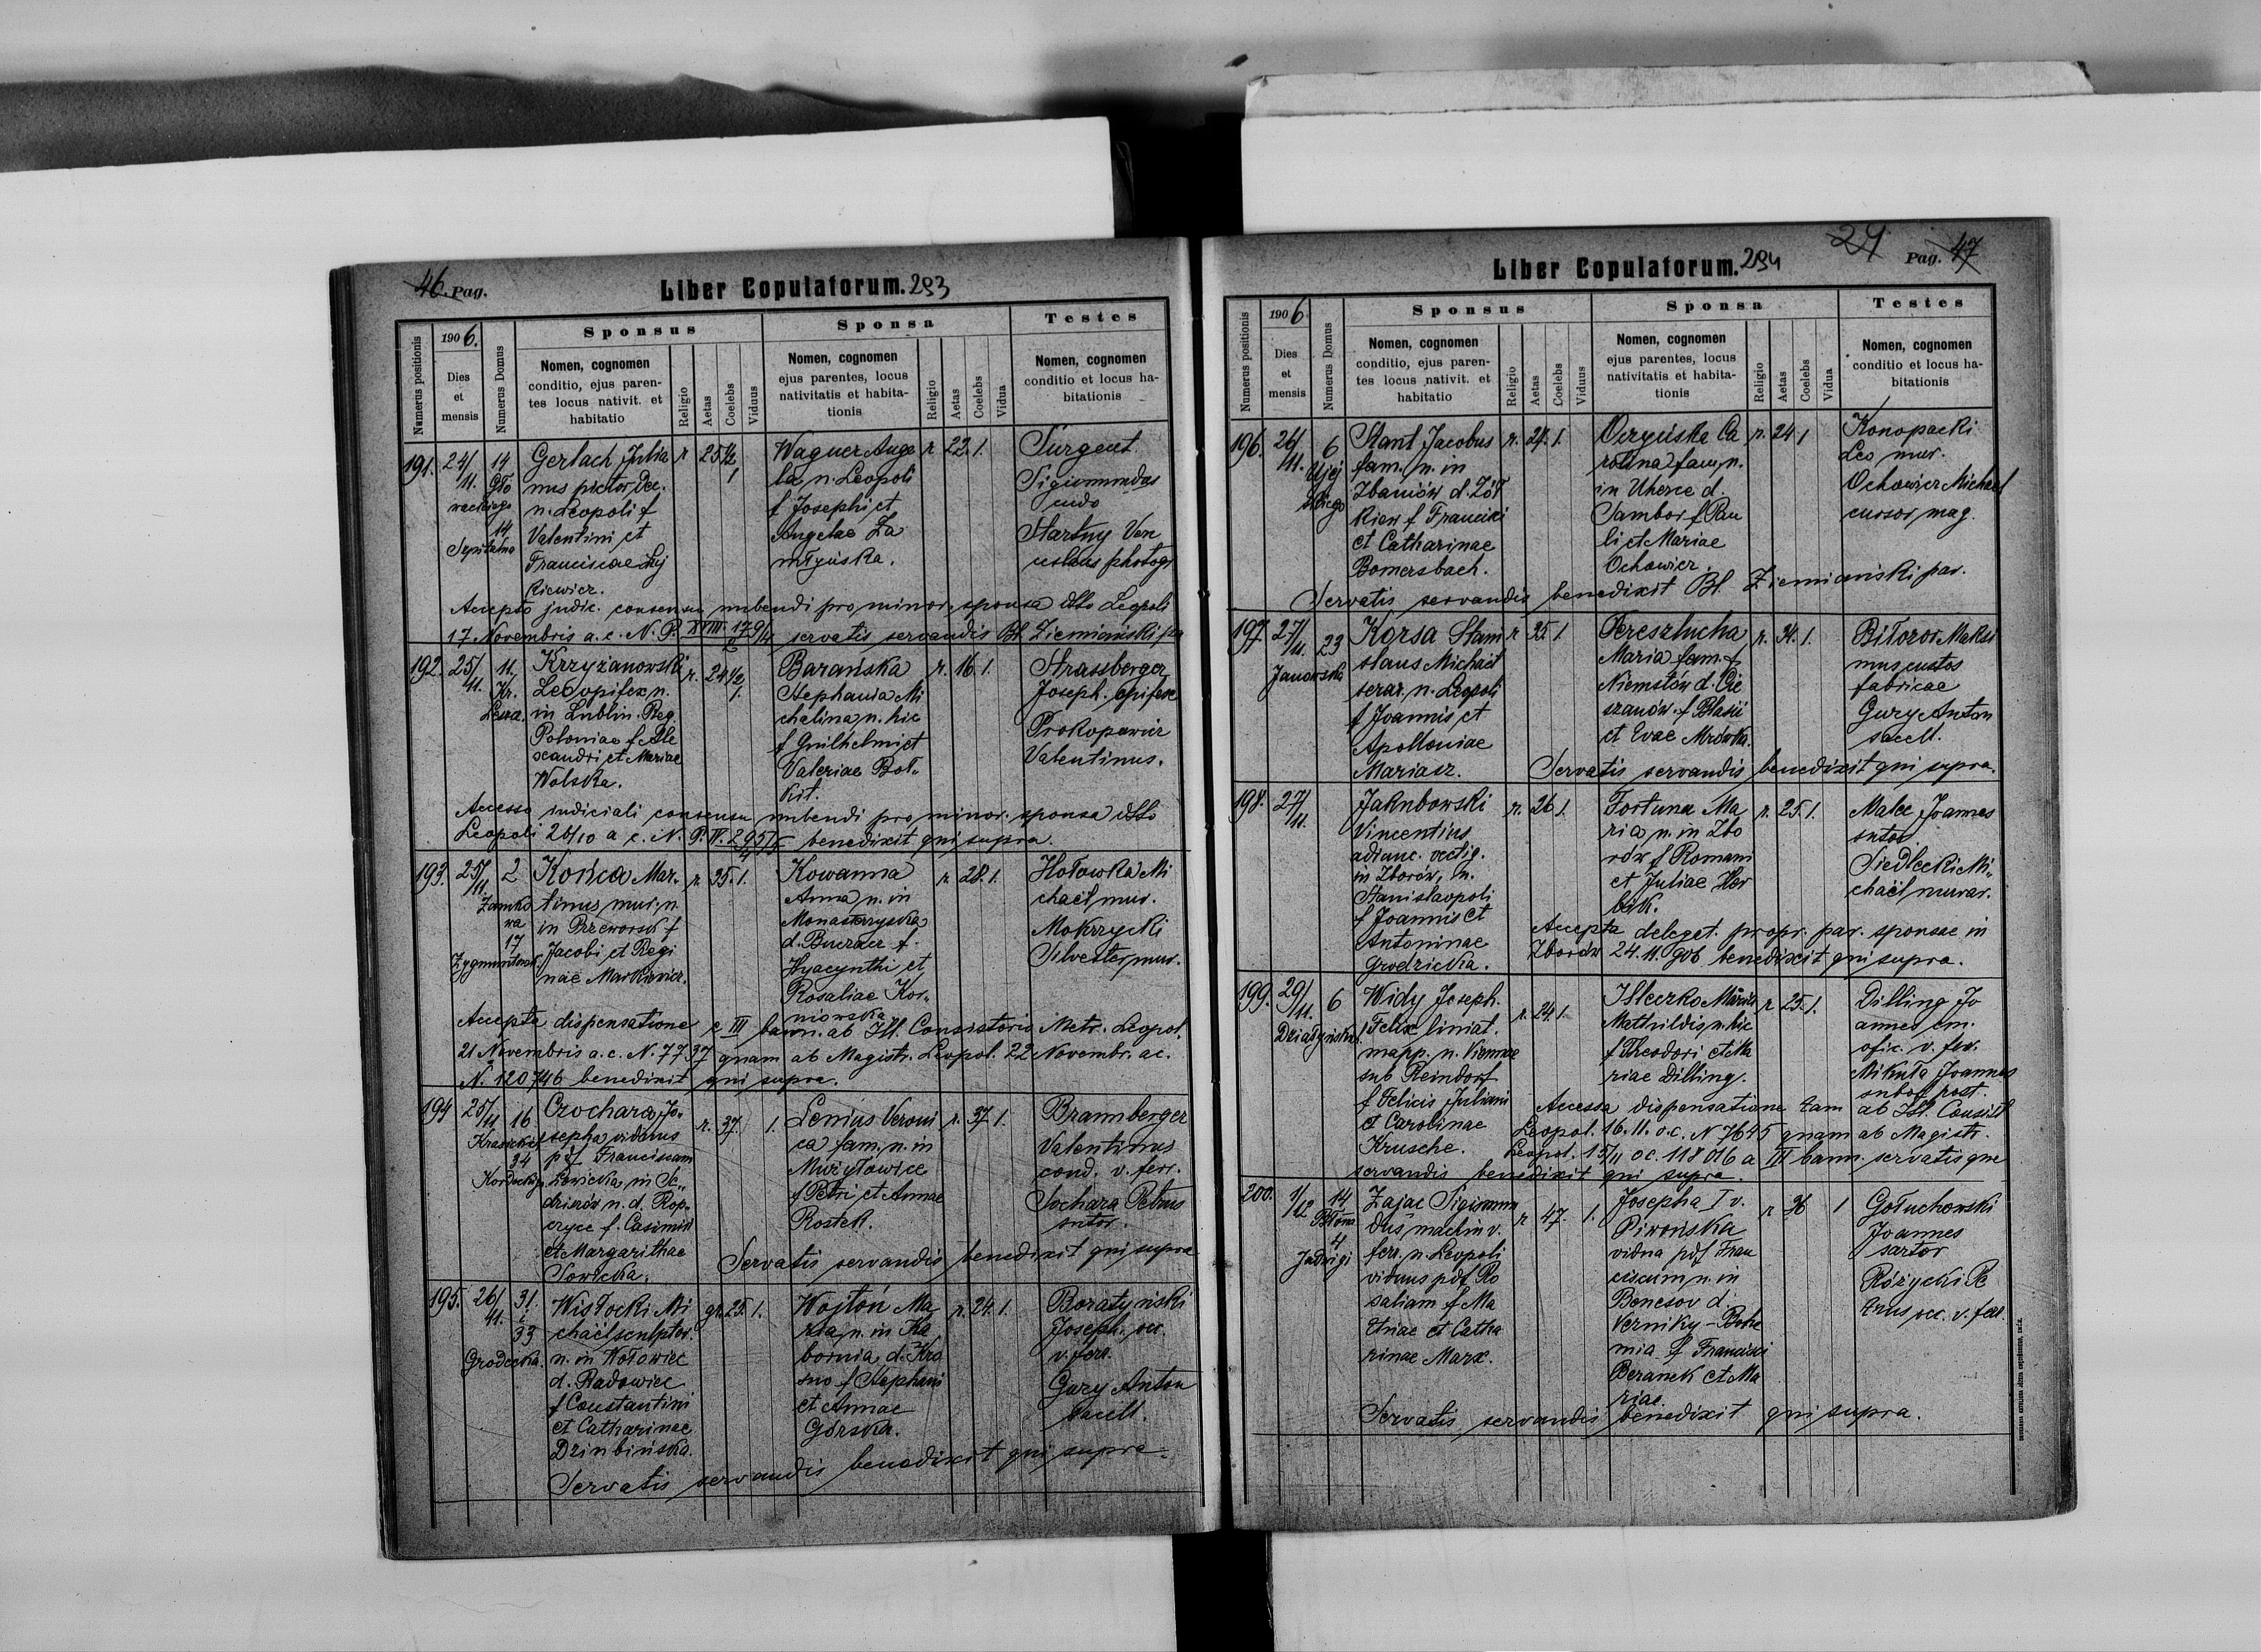 46. Pag.
Liber Copulatorum. 293
Numerus positionis
1906.
Dies
et
mensis
Numerus Domus
Sponsus
Nomen, cognomen
conditio, ejus paren-
tes locus nativit. et
habitatio
Religio
Aetas
Coelebs
Viduus
Sponsa
Nomen, cognomen
ejus parentes, locus
nativitatis et habita-
tionis
Religio
Aetas
Coelebs
Vidua
Testes
Nomen, cognomen
conditio et locus ha-
bitationis
191. 24/11. 14
14
Szpitalna
Gerlach Julia
nus pictor
n. Leopoli f
Valentini et
Franciscae
kiewicz.
r 25 1/2 1
Wagner Ange
la n. Leopoli
f Josephi et
Angelae La
r 22. 1.
Surgent
Sigismundus
Startny Ven
ceslaus photogr
Accepto judic. consensu nubendi pro minor. sponsa dtto Leopoli
17 Novembris a. c. N. P. XVIII. servatis servandis Bl. Ziemiański par
192. 25/11. 11.
Kr.
Krzyżanowski
Leo opifex n.
in Lublin. Reg.
Poloniae f Ale
xandri et Mariae
Wolska.
r. 24 1/2 1.
Barańska
Stephania Mi
chalina n. hic
f Guilhelmi et
Valeriae Bot-
kit.
r. 16. 1.
Strassberger
Joseph. opifex
Prokopowicz
Valentinus.
judiciali consensu nubendi pro minor. sponsa dtto
Leopoli 20/10 a. c. N. P. IV. benedixit qui supra.
193. 25/11. 2
Zamko
wa
17
Końca Mar-
tinus, mur, n.
in Przeworsk f
Jacobi et Regi
nae Markiewicz.
r. 35. 1.
Kowanna
Anna n. in
Monasterzyska
d. Buczacz f.
Hyacynthi et
Rosaliae Kor-
niowska.
r. 28. 1.
Hołowka Mi
chaël mur.
Mokrzycki
Silvester, mur.
Accepta dispensatione e III bann. ab Ill. Consistorio Metr. Leopol.
21 Novembris a. c. N. 7737 quam ab Magistr. Leopol. 22 Novembr. ac.
N. 120746 benedixit qui supra.
194 25/11 16
34
Czochara Jo-
sepha viduus
p. Franciscam
in Se-
dziszów n. d. Rop-
czyce f. Casimiri
et Margarithae
Sowicka.
r. 37. 1.
Lenius Veroni
ca fam, n. in
Mużyłowice
f Petri et Annae
Rostek.
r. 37 1.
Brannberger
Valentinus
cond. v. ferr.
Sochara Petrus
sutor.
Servatis servandis benedixit qui supra
195. 26/11. 31.
33
Grodecka.
Wisłocki Mi
chaël sculptor.
n. in Wołowiec
d. Radowiec
f Constantini
et Catharinae
Dziubińska.
gr. 25. 1.
Wojtoń Ma
ria, n. in Ha
bornia, d. Kro
sno f Stephani
et Annae
Górska.
r. 24. 1.
Boratyński
Joseph. occ.
v. ferr.
Gury Anton
sacell.
Servatis servandis benedixit qui supra.
29 Pag. 47
Liber Copulatorum. 294
Numerus positionis
1906
Dies
et
mensis
Numerus Domus
Sponsus
Nomen, cognomen
conditio, ejus paren-
tes locus nativit. et
habitatio
Religio
Aetas
Coelebs
Viduus
Sponsa
Nomen, cognomen
ejus parentes, locus
nativitatis et habita-
tionis
Religio
Aetas
Coelebs
Vidua
Testes
Nomen, cognomen
conditio et locus ha-
bitationis
196. 26/11. 6
Ujej
skiego
Jacobus
fam. n. in
d. Żół
kiew f Francisci
et Catharinae
Bomersbach.
r. 1.
Ca
rolina fam, n.
in Uherce d.
Sambor f Pau
li et Mariae
Ochowicz.
r. 24 1
Konopacki
Leo mur.
Ochowicz Michael
cursor mag.
Servatis servandis benedixit Bl. Ziemiański par.
197. 27/11. 23
Janowska
Korsa Stani
slaus Michaël
serar. n. Leopoli
f Joannis et
Apolloniae
Mariasz.
r 35. 1.
Pereszlucha
Maria fam. f
Niemstów d. Cie
szanów f Blasii
et Evae Mrówka.
r. 34. 1.
Maksi
mus custos
fabricae
Gury Anton
sacell.
Servatis servandis benedixit qui supra.
198. 27/11.
Jakubowski
Vincentius
adiunc. vectig.
in Zborów, n.
Stanislaopoli
f Joannis et
Antoninae
Grodzicka.
r. 26 1.
Fortuna Ma
ria n. in Zbo
rów f Romani
et Juliae Hor
bik.
r. 25. 1.
Malec Joannes
sutor
Siedlecki Mi-
chaël murar.
Accepta deleget. propr. par. sponsae in
Zborów 24. 11. 906 benedixit qui supra.
199. 29/11. 6
Widy Joseph.
Felix liniat.
mapp. n. Viennae
sub Reindorf
f Felicis Juliani
et Carolinae
Krusche.
r. 24 1.
Maria
Mathildis, n. hic
f Theodori et Ma
riae Dilling.
r 25. 1.
Dilling Jo
annes em.
ofic. v. ferr.
Mikuła Joannes
subof. post.
dispensatione tam ab Ill. Consist
Leopol. 16. 11. a. c. N 7645 quam ab Magistr.
Leopol. 15/11 a c. 118016 a III bann. servatisque
servandis benedixit qui supra.
200. 1/12 14
4
Jadwigi
Zajac Sigismun
dus machin v.
ferr. n. Leopoli
viduus pdf Ro
saliam f Ma
thiae et Catha
rinae Marx.
r 47. 1.
Josepha I v.
Piwońska
vidua pdf Fran
ciscum, n. in
Benesov d.
Verniky - Bohe
mia f Francisci
Beranek et Ma
riae.
r 36 1
Gołuchowski
Joannes
sartor
Różycki Pe
trus occ. v. ferr.
Servatis servandis benedixit qui supra.